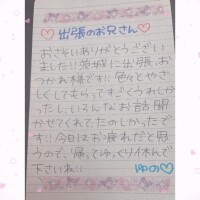 ♡出張のお兄さん♡
おさそいありがとうござい
ました!!茨城に出張、お
つかれ様です!!色々とやさ
しくしてもらってすごくうれしか
ったし、いろんなお話聞
かせてくれてたのしかったで
す!!今日はお疲れだと思
うので、帰ってゆっくり休んで
下さいね!!
ゆの♡